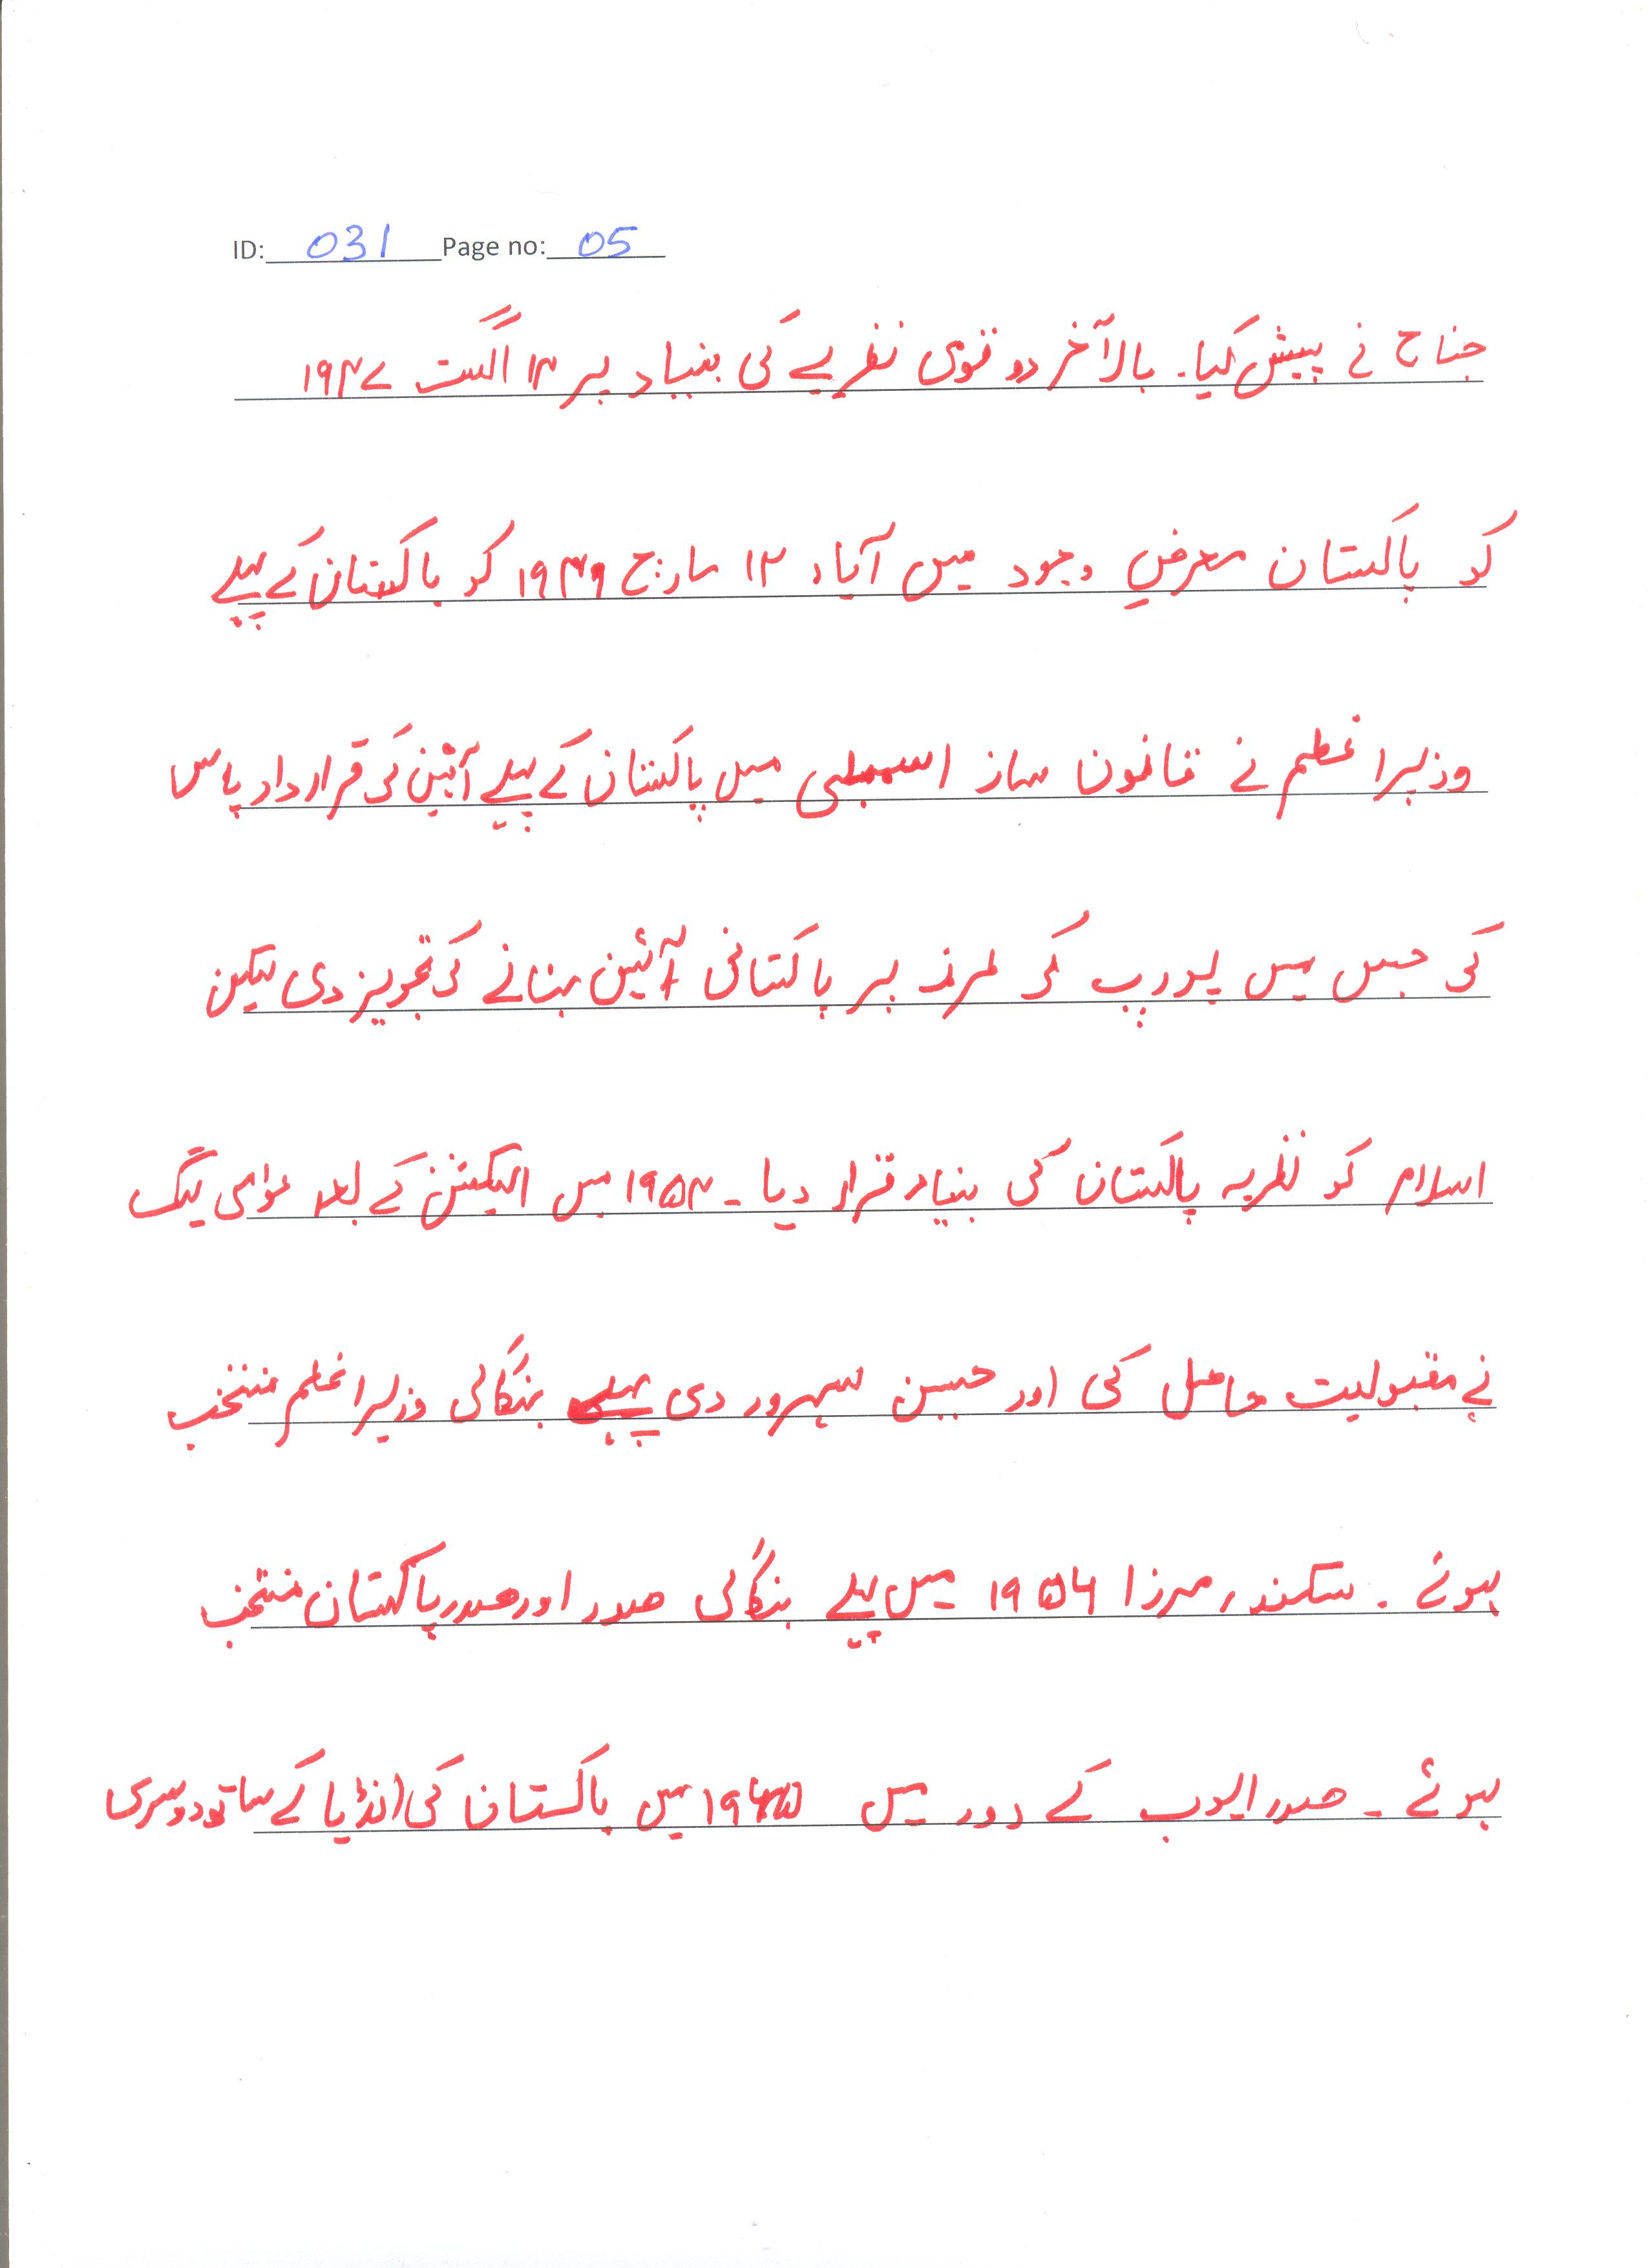 ID: 031 Page no: 05
جناح نے پیش کیا۔ بالآخر دو قومی نظریے کی بنیاد پر ۱۴ اگست ۱۹۴۷
کو پاکستان معرضِ وجود میں آیا۔ ۱۲ مارچ ۱۹۴۹ کو پاکستان کے پہلے
وزیراعظم نے قانون ساز اسمبلی میں پاکستان کے پہلے آئین کی قرارداد پاس
کی جس میں یورپ کی طرز پر پاکستانی آئین بنانے کی تجویز دی لیکن
اسلام کو نظریہ پاکستان کی بنیاد قرار دیا۔ ۱۹۵۴ میں الیکشنز کے بعد عوامی لیگ
نے مقبولیت حاصل کی اور حسین سہروردی پہلے بنگالی وزیراعظم منتخب
ہوئے۔ سکندر مرزا ۱۹۵۶ میں پہلے بنگالی صدر اور صدر پاکستان منتخب
ہوئے۔ صدر ایوب کے دور میں ۱۹۶۵ میں پاکستان کی انڈیا کے ساتھ دوسری